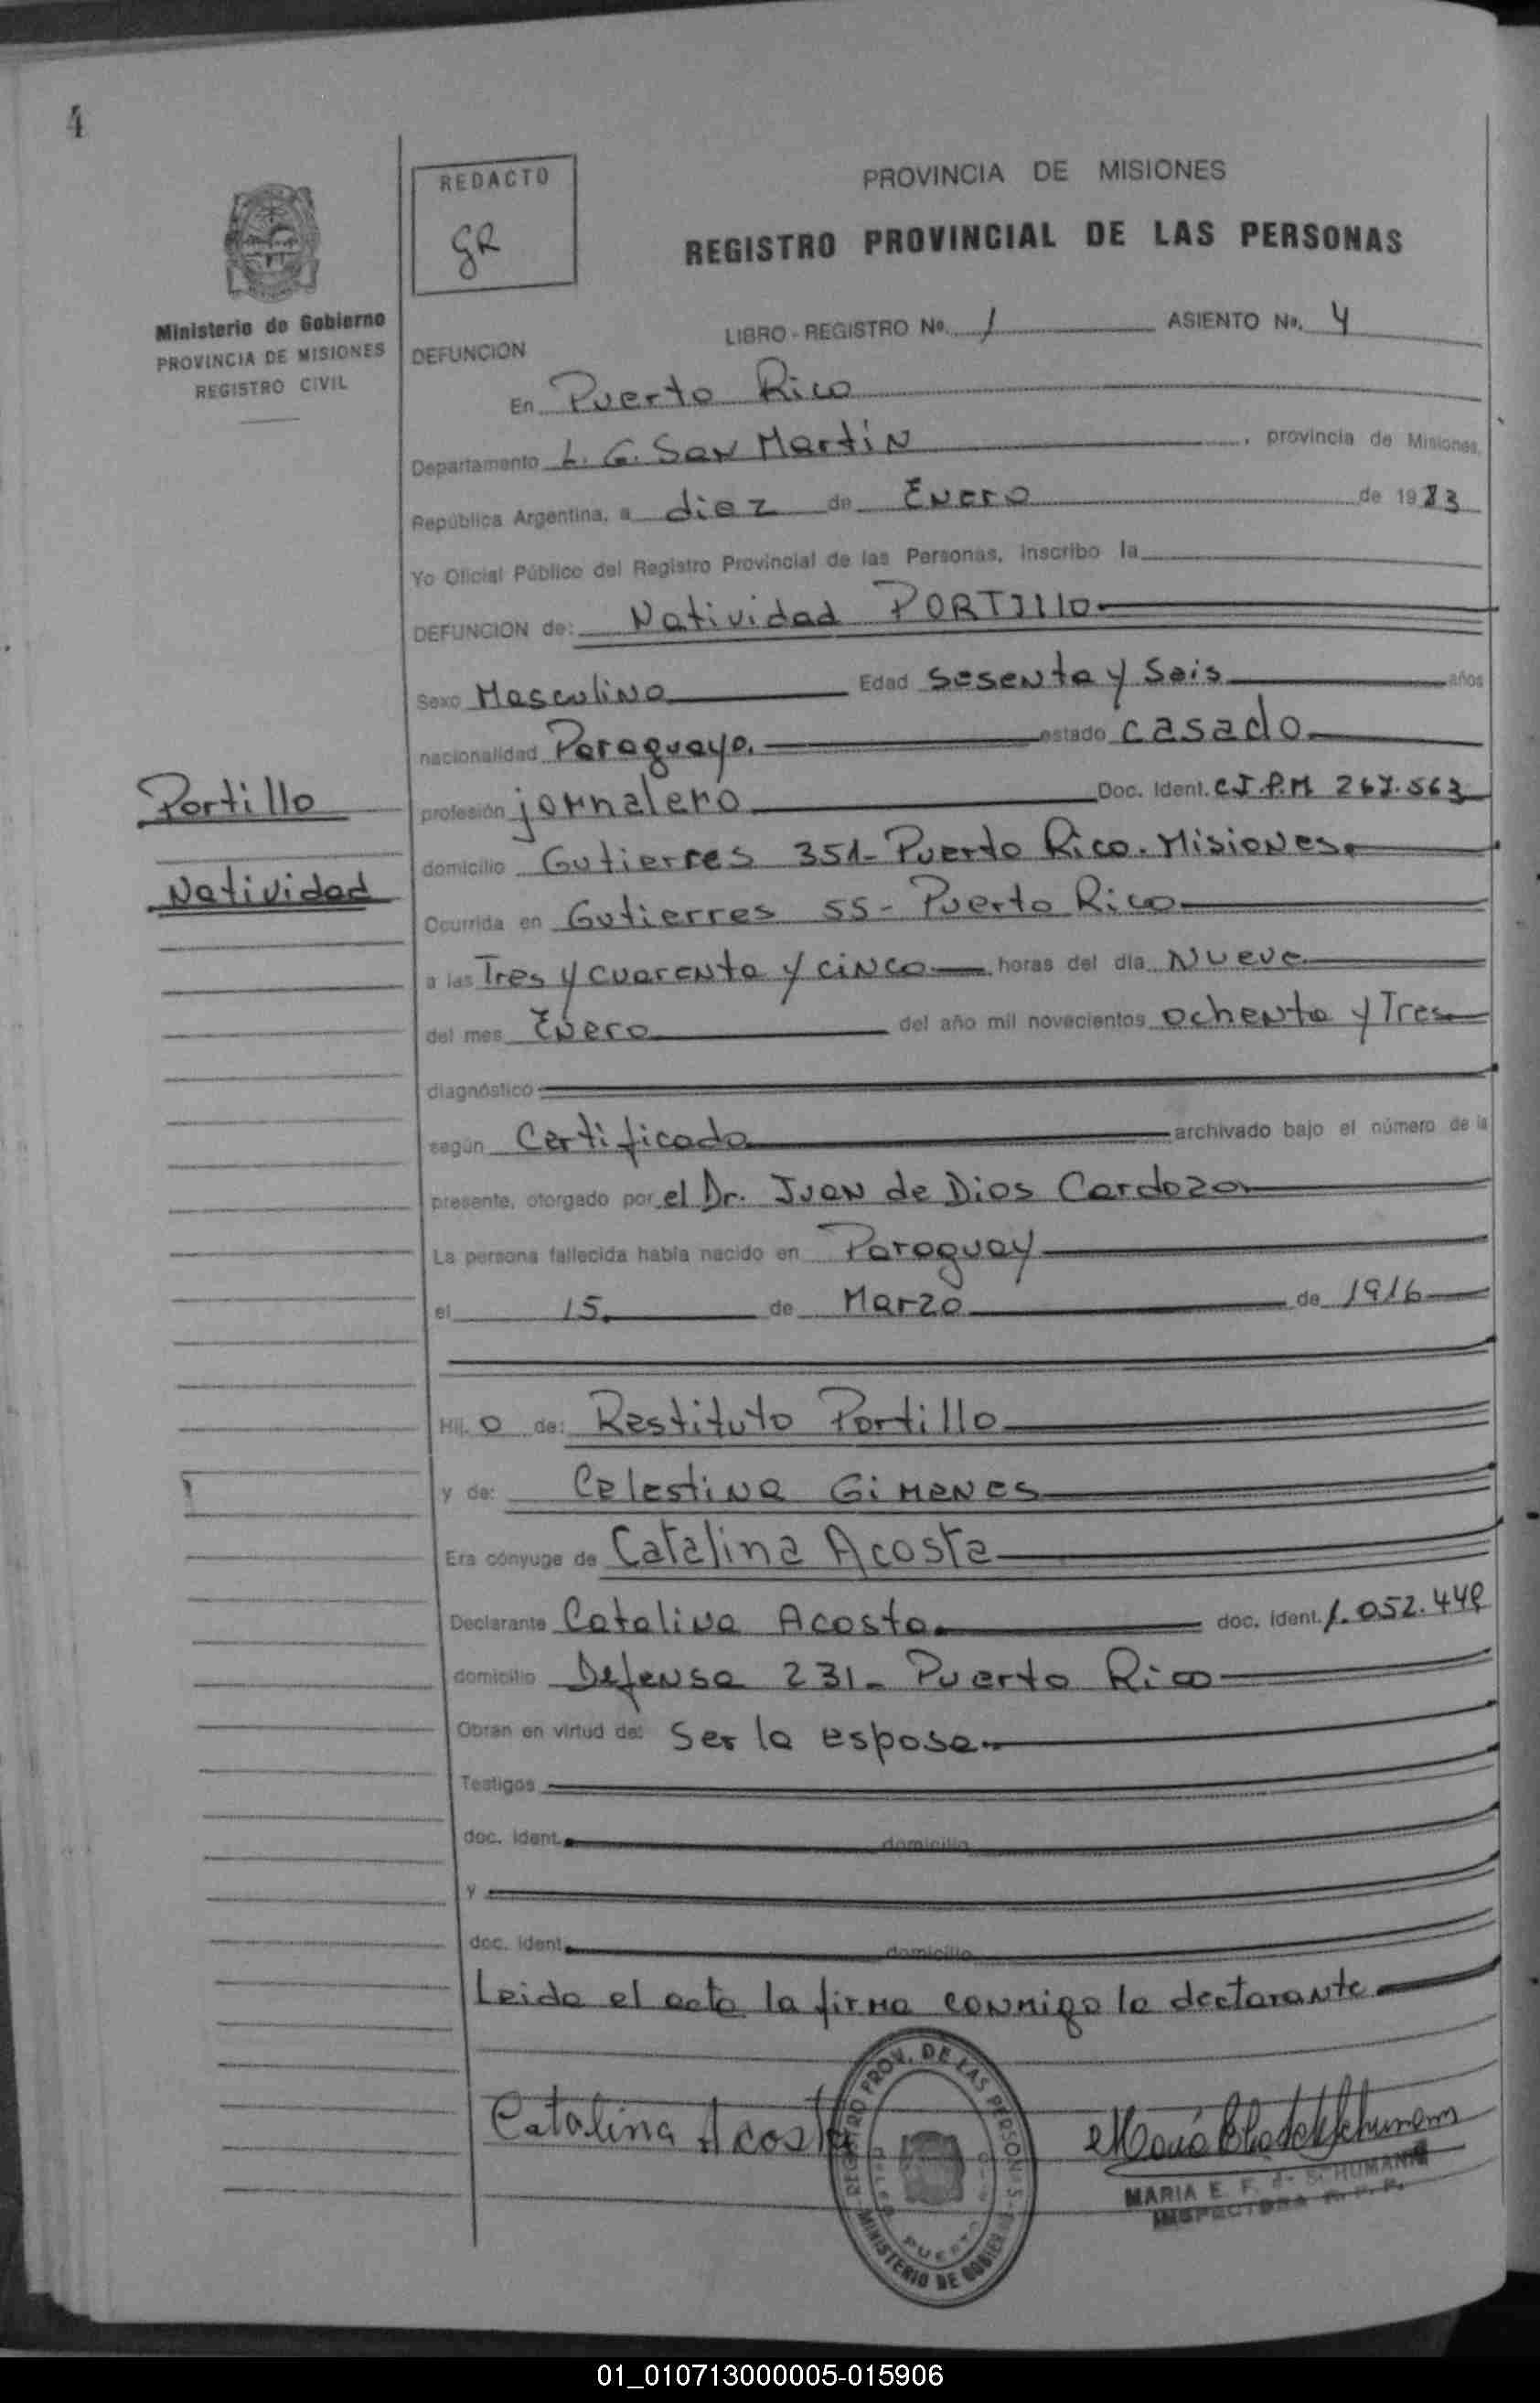 4
REDACTO
gR
PROVINCIA DE MISIONES
REGISTRO PROVINCIAL DE LAS PERSONAS
Ministerio de Gobierno
PROVINCIA DE MISIONES
REGISTRO CIVIL
LIBRO - REGISTRO Nº. 1 ASIENTO Nº. 4
DEFUNCION
En Puerto Rico
Departamento L. G. San Martin , provincia de Misiones,
República Argentina, a diez de Enero de 1983
Yo Oficial Público del Registro Provincial de las Personas, inscribo la
DEFUNCION de: Natividad PORTIllO
Sexo Masculino Edad Sesenta y Seis años
nacionalidad Paraguaya. estado casado
Portillo
profesión jornalero Doc. Ident. C.I.P.M 267.563
domicilio Gutierres 351- Puerto Rico. Misiones.
Natividad
Ocurrida en Gutierres 55- Puerto Rico
a las Tres y cuarenta y cinco horas del día Nueve
del mes Enero del año mil novecientos ochenta y Tres
diagnóstico
según Certificado archivado bajo el número de la
presente, otorgado por el Dr. Juan de Dios Cardozo
La persona fallecida había nacido en Paraguay
el 15 de Marzo de 1916
Hij. o de: Restituto Portillo
y de: Celestina Gimenes
Era cónyuge de Catalina Acosta
Declarante Catalina Acosta doc. ident. 1.052.448
domicilio Defensa 231- Puerto Rico
Obran en virtud de: Ser la esposa
Testigos
doc. ident. domicilio
y
doc. ident. domicilio
Leida el acta la firma conmigo la declarante
Catalina Acosta
REGISTRO PROV. DE LAS PERSONAS - MINISTERIO DE GOBIERNO
PUERTO
MARIA E. F. de SCHUMANN
INSPECTORA R. P. P.
01_010713000005-015906